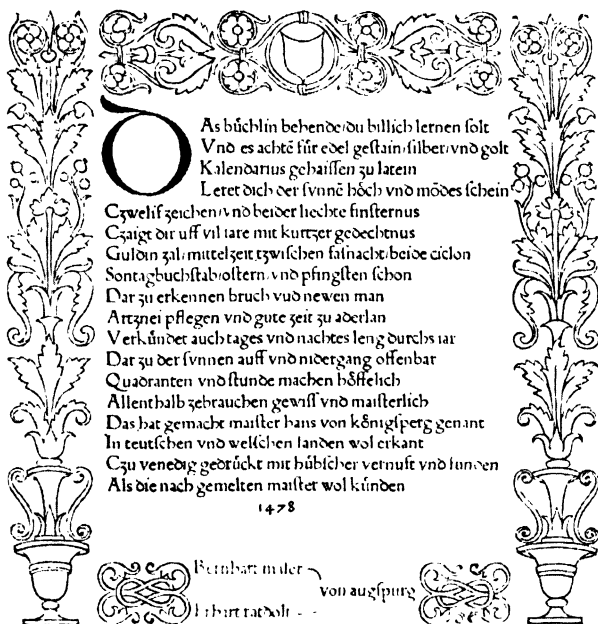 DAs bůchlin behende du billich lernen solt
Vnd es achtē für edel gestain/silber/vnd golt
Kalendarius gehaissen zu latein
Leret dich der sunnē hőch vnd mődes schein
Czwelif zeichen/vnd beider liechte finsternus
Czaigt dir uff vil iare mit kurtzer gedechtnus
Guldin zal/mittelzeit/tzwischen fasnacht/beide ciclon
Sontagbuchstab/ostern/vnd pfingsten schon
Dar zu erkennen bruch vud newen man
Artznei pflegen vnd gute zeit zu aderlan
Verkúndet auch tages vnd nachtes leng durchs iar
Dar zu der sunnen auff vnd nidergang offenbar
Quadranten vnd stunde machen hőffelich
Allenthalb zebrauchen gewiss vnd maisterlich
Das hat gemacht maister hans von kőnigsperg genant
In teutschen vnd welschen landen wol erkant
Czu venedig gedrúckt mit húbscher vernuft vnd
Als die nach gemelten maister wol kúnden
1478
Bernhart maler
von augspurg
Erhart ratdolt